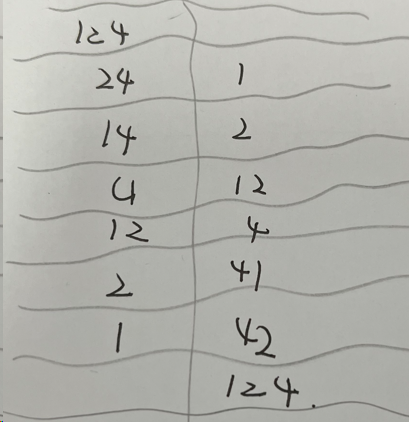 124
24 1
14 2
4 12
12 4
2 41
1 42
124.